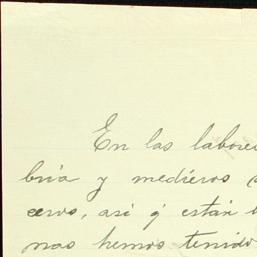 En las labores
bría y medieros
ceros, así q́ están
nas hemos tenido